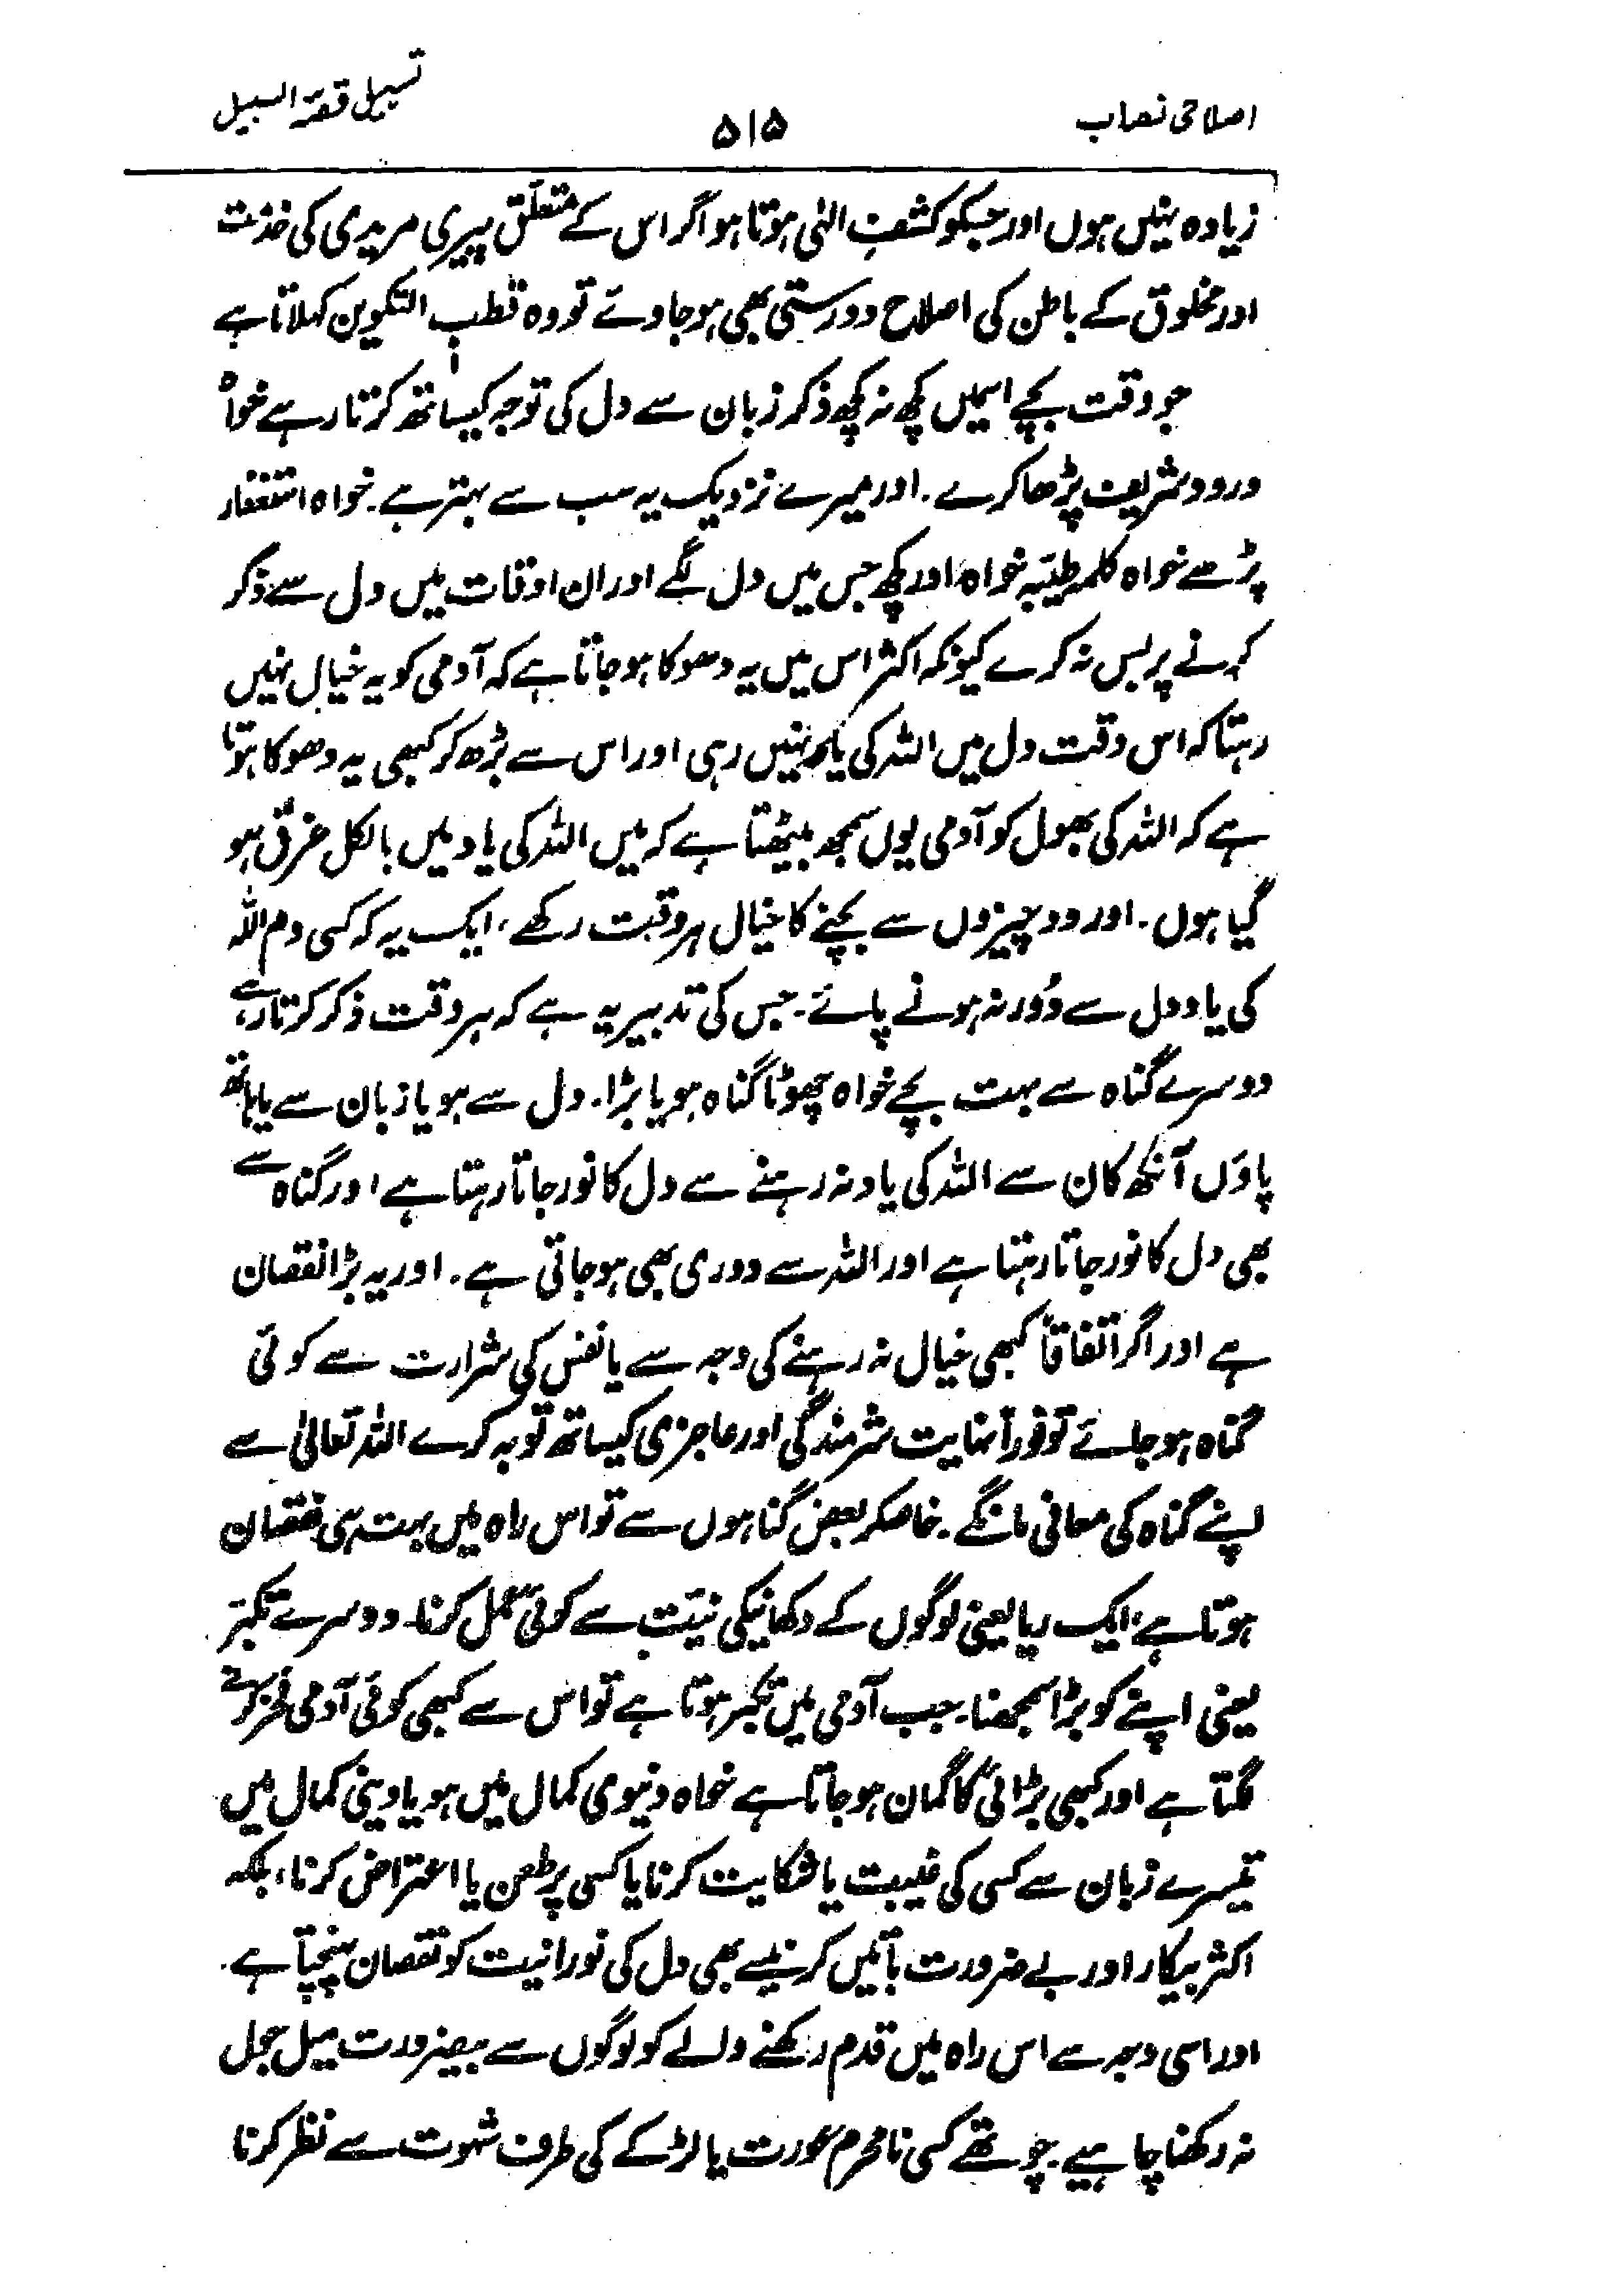 اصلاحی نصاب
۵۱۵
تسہیل قصد السبیل
زیادہ نہیں ہوں اور جسکو کشف الٰہی ہوتا ہو اگر اس کے متعلق پیری مریدی کی خدمت
اور مخلوق کے باطن کی اصلاح و درستی بھی ہو جاوے تو وہ قطب التکوین کہلاتا ہے
جو وقت بچے اسمیں کچھ نہ کچھ ذکر زبان سے دل کی توجہ کیساتھ کرتا رہے خواہ
درود شریف پڑھا کرے۔ اور میرے نزدیک یہ سب سے بہتر ہے۔ خواہ استغفار
پڑھے خواہ کلمہ طیّبہ خواہ اور کچھ جس میں دل لگے اور ان اوقات میں دل سے ذکر
کرنے پر بس نہ کرے کیونکہ اکثر اس میں یہ دھوکا ہو جاتا ہے کہ آدمی کو یہ خیال نہیں
رہتا کہ اس وقت دل میں اللہ کی یاد نہیں رہی اور اس سے بڑھ کر کبھی یہ دھوکا ہوتا
ہے کہ اللہ کی بھول کو آدمی یوں سمجھ بیٹھتا ہے کہ میں اللہ کی یاد میں بالکل غرق ہو
گیا ہوں۔ اور دو چیزوں سے بچنے کا خیال ہر وقت رکھے، ایک یہ کہ کسی دم اللہ
کی یاد دل سے دُور نہ ہونے پائے۔ جس کی تدبیر یہ ہے کہ ہر وقت ذکر کرتا رہے،
دوسرے گناہ سے بہت بچے خواہ چھوٹا گناہ ہو یا بڑا۔ دل سے ہو یا زبان سے یا ہاتھ
پاؤں آنکھ کان سے اللہ کی یاد نہ رہنے سے دل کا نور جاتا رہتا ہے اور گناہ سے
بھی دل کا نور جاتا رہتا ہے اور اللہ سے دوری بھی ہو جاتی ہے۔ اور یہ بڑا نقصان
ہے اور اگر اتفاقاً کبھی خیال نہ رہنے کی وجہ سے یا نفس کی شرارت سے کوئی
گناہ ہو جائے تو فوراً نہایت شرمندگی اور عاجزی کیساتھ توبہ کرے اللہ تعالیٰ سے
اپنے گناہ کی معافی مانگے۔ خاصکر بعض گناہوں سے تو اس راہ میں بہت ہی نقصان
ہوتا ہے، ایک ریا یعنی لوگوں کے دکھانیکی نیّت سے کوئی عمل کرنا۔ دوسرے تکبّر
یعنی اپنے کو بڑا سمجھنا۔ جب آدمی میں تکبّر ہوتا ہے تو اس سے کبھی کوئی آدمی فخر کرنے
لگتا ہے اور کبھی بڑائی کا گمان ہو جاتا ہے خواہ دنیوی کمال میں ہو یا دینی کمال میں
تیسرے زبان سے کسی کی غیبت یا شکایت کرنا یا کسی پر طعن یا اعتراض کرنا، بلکہ
اکثر بیکار اور بے ضرورت باتیں کرنیسے بھی دل کی نورانیت کو نقصان پہنچتا ہے۔
اور اسی وجہ سے اس راہ میں قدم رکھنے والے کو لوگوں سے بیضرورت میل جول
نہ رکھنا چاہیے۔ چوتھے کسی نامحرم عورت یا لڑکے کی طرف شہوت سے نظر کرنا